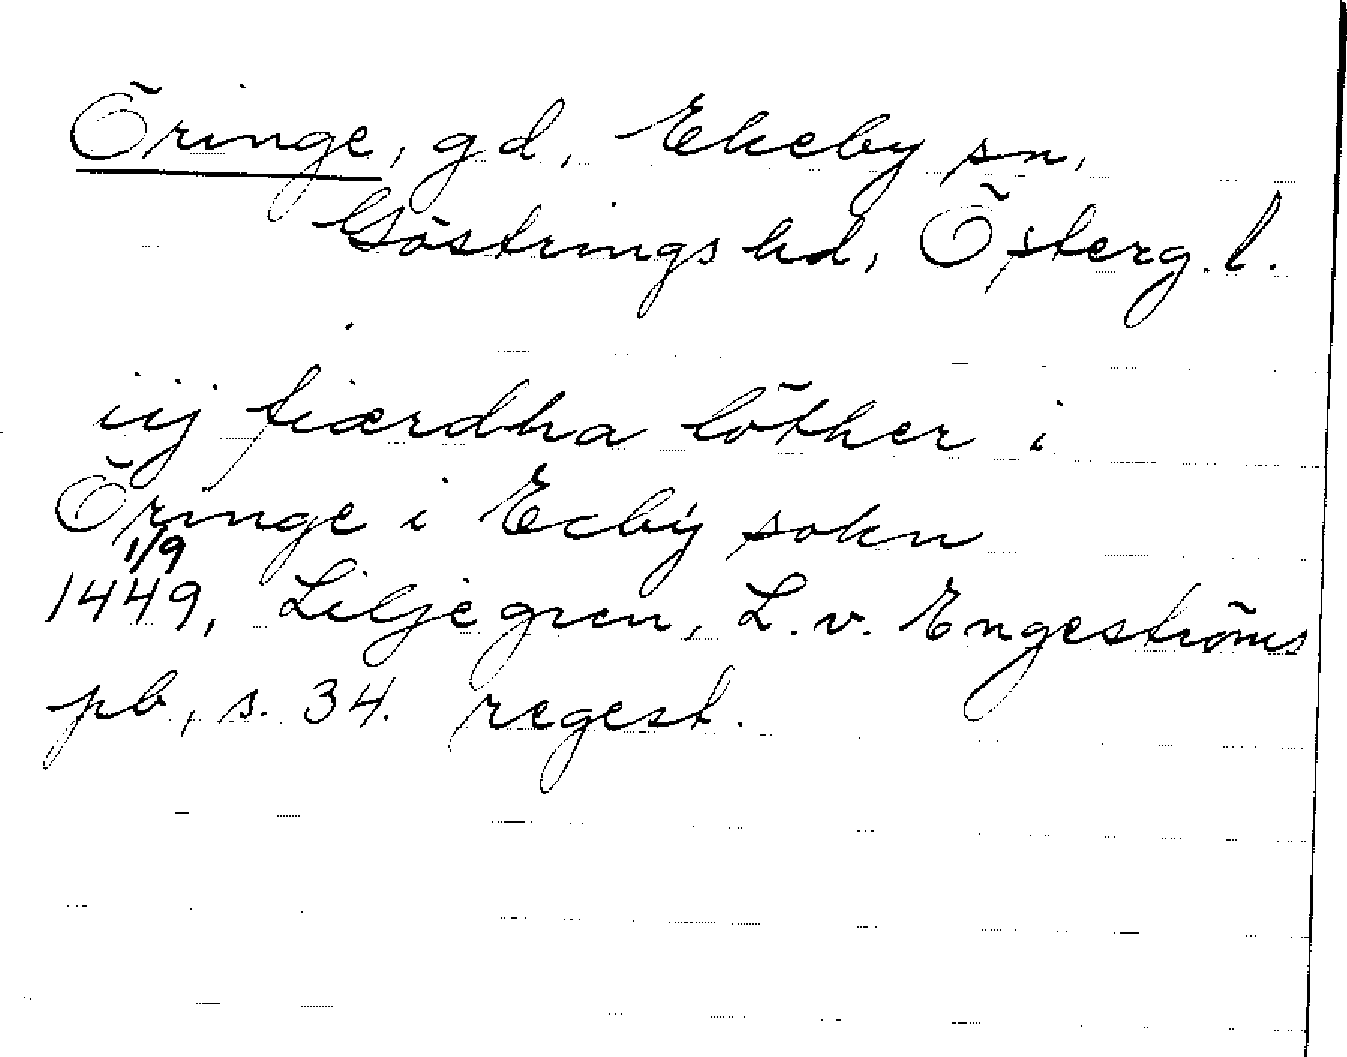 Öringe, gd, Ekeby sn,
Göstrings hd, Österg. l.
iij fiærdha löther i
Öringe i Ecby sokn
1/9
1449, Liljegren, L. v. Engeströms
pb, s. 34. regest.